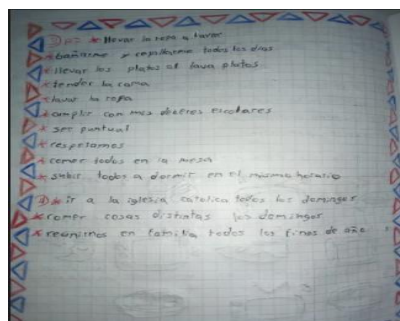 ③ R/ * llevar la ropa a lavar
* bañarme y cepillarme todos los dias
* llevar los platos al lava platos
* tender la cama
* lavar la ropa
* cumplir con mis deberes escolares
* ser puntual
* respetarnos
* comer todos en la mesa
* subir todos a dormir en el mismo horario
④ * ir a la iglesia catolica todos los domingos
* comer cosas distintas los domingos
* reunirnos en familia todos los fines de año